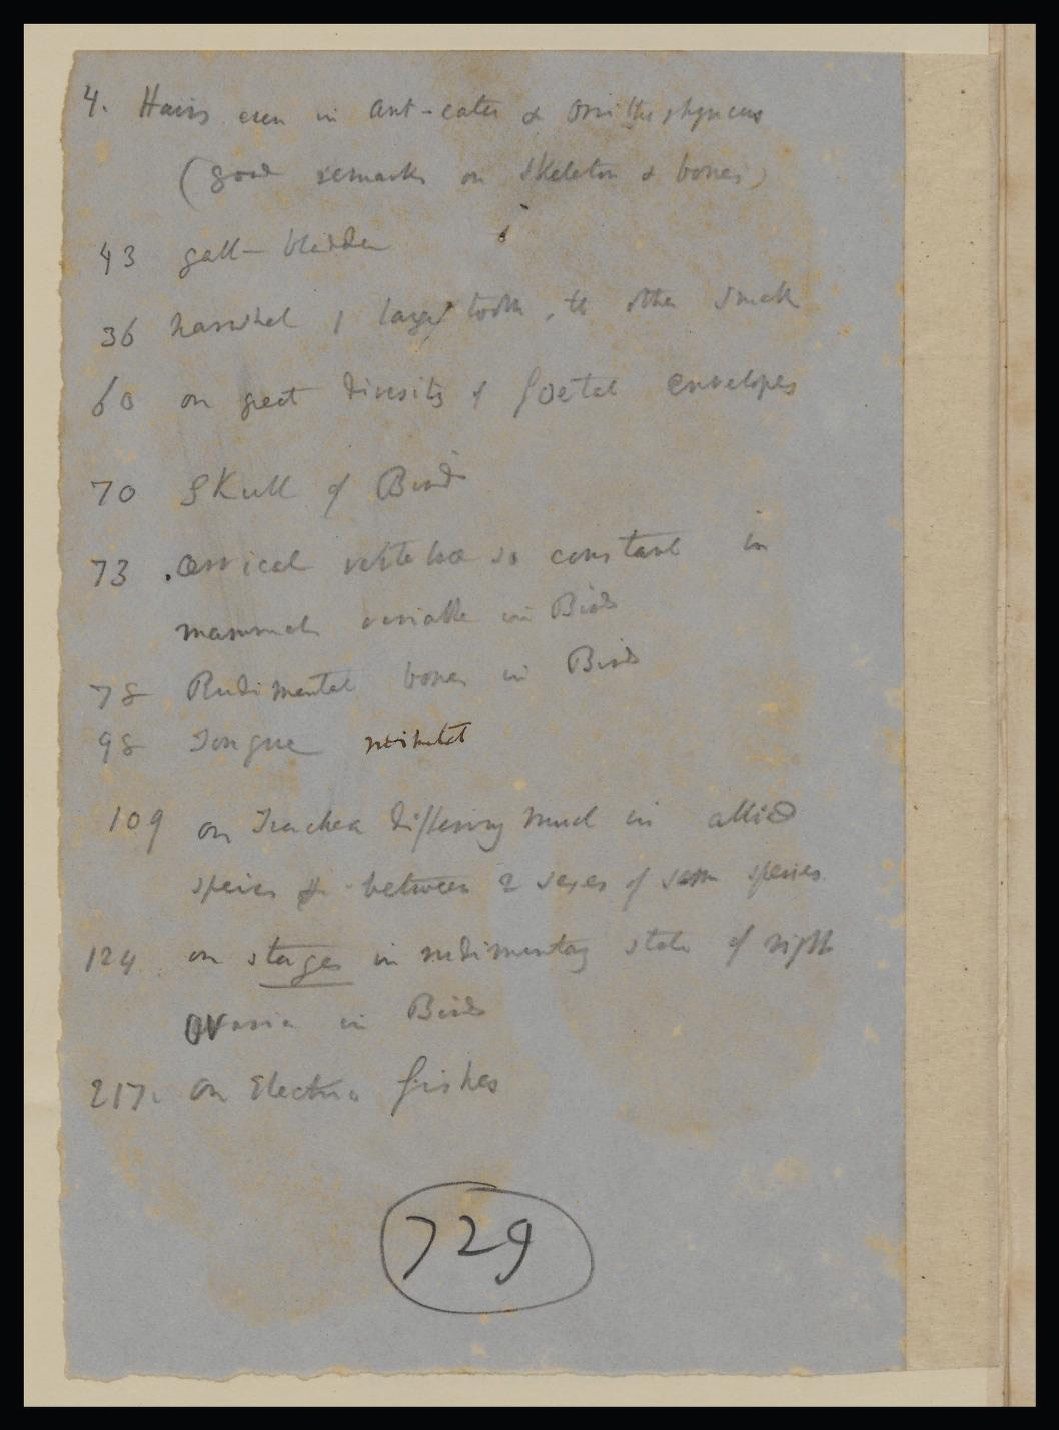 4. Hairs even in ant-eater & Ornithorhyncus
(good remarks on skeleton & bones)
43 gall-bladder
36 Narwhal 1 large tooth, the other small
60 on great diversity of foetal envelopes
70 Skull of Birds
73 Cervical vertebræ so constant in
mammals variable in Birds
78 Rudimental bones in Birds
98 Tongue
109 on Trachea differing much in allied
species & between 2 sexes of same species
124 on stages in rudimentary state of right
ovaria in Birds
217. On Electric fishes
729